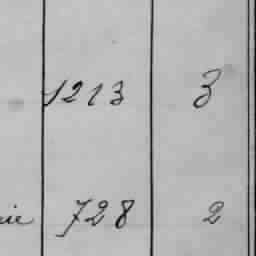 1213 3
728 2